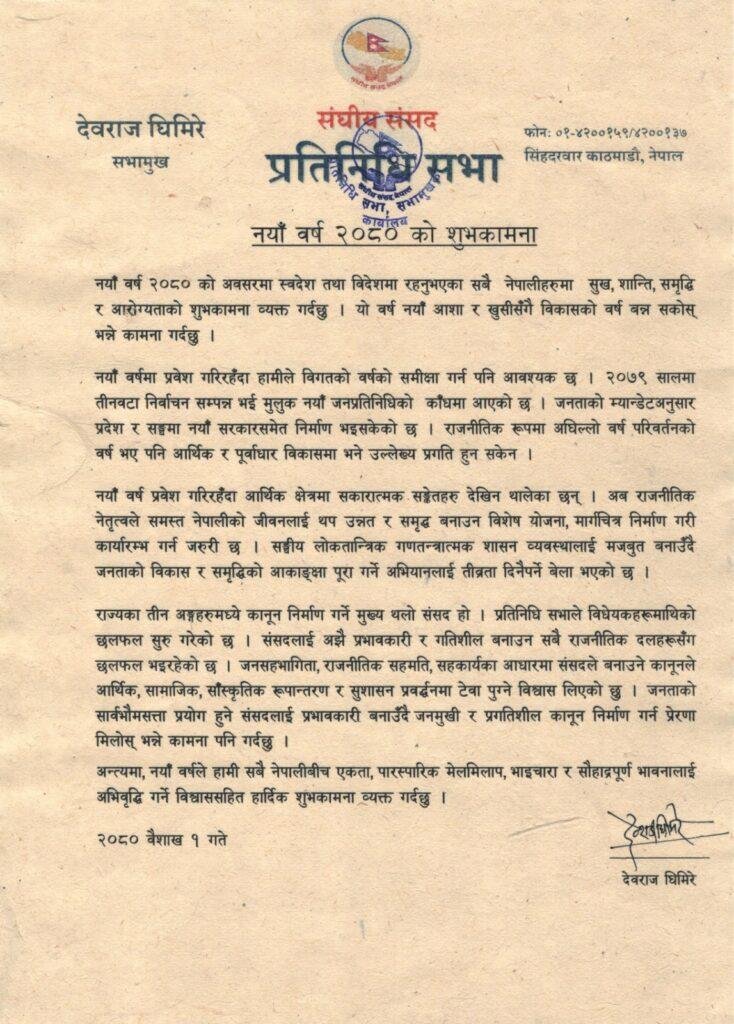 संघीय संसद नेपाल
देवराज घिमिरे
सभामुख
संघीय संसद
प्रतिनिधि सभा
फोन: ०१-४२००१५९/४२००१३७
सिंहदरवार काठमाडौ, नेपाल
संघीय संसद नेपाल
प्रतिनिधि सभा, सभामुखको
कार्यालय
नयाँ वर्ष २०८० को शुभकामना
नयाँ वर्ष २०८० को अवसरमा स्वदेश तथा विदेशमा रहनुभएका सबै नेपालीहरुमा सुख, शान्ति, समृद्धि
र आरोग्यताको शुभकामना व्यक्त गर्दछु । यो वर्ष नयाँ आशा र खुसीसँगै विकासको वर्ष बन्न सकोस्
भन्ने कामना गर्दछु ।
नयाँ वर्षमा प्रवेश गरिरहँदा हामीले विगतको वर्षको समीक्षा गर्न पनि आवश्यक छ । २०७९ सालमा
तीनवटा निर्वाचन सम्पन्न भई मुलुक नयाँ जनप्रतिनिधिको काँधमा आएको छ । जनताको म्यान्डेटअनुसार
प्रदेश र सङ्घमा नयाँ सरकारसमेत निर्माण भइसकेको छ । राजनीतिक रूपमा अघिल्लो वर्ष परिवर्तनको
वर्ष भए पनि आर्थिक र पूर्वाधार विकासमा भने उल्लेख्य प्रगति हुन सकेन ।
नयाँ वर्ष प्रवेश गरिरहँदा आर्थिक क्षेत्रमा सकारात्मक सङ्केतहरु देखिन थालेका छन् । अब राजनीतिक
नेतृत्वले समस्त नेपालीको जीवनलाई थप उन्नत र समृद्ध बनाउन विशेष योजना, मार्गचित्र निर्माण गरी
कार्यारम्भ गर्न जरुरी छ । सङ्घीय लोकतान्त्रिक गणतन्त्रात्मक शासन व्यवस्थालाई मजबुत बनाउँदै
जनताको विकास र समृद्धिको आकाङ्क्षा पूरा गर्ने अभियानलाई तीव्रता दिनैपर्ने बेला भएको छ ।
राज्यका तीन अङ्गहरुमध्ये कानून निर्माण गर्ने मुख्य थलो संसद हो । प्रतिनिधि सभाले विधेयकहरूमाथिको
छलफल सुरु गरेको छ । संसदलाई अझै प्रभावकारी र गतिशील बनाउन सबै राजनीतिक दलहरूसँग
छलफल भइरहेको छ । जनसहभागिता, राजनीतिक सहमति, सहकार्यका आधारमा संसदले बनाउने कानूनले
आर्थिक, सामाजिक, साँस्कृतिक रूपान्तरण र सुशासन प्रवर्द्धनमा टेवा पुग्ने विश्वास लिएको छु । जनताको
सार्वभौमसत्ता प्रयोग हुने संसदलाई प्रभावकारी बनाउँदै जनमुखी र प्रगतिशील कानून निर्माण गर्न प्रेरणा
मिलोस् भन्ने कामना पनि गर्दछु ।
अन्त्यमा, नयाँ वर्षले हामी सबै नेपालीबीच एकता, पारस्पारिक मेलमिलाप, भाइचारा र सौहाद्रपूर्ण भावनालाई
अभिवृद्धि गर्ने विश्वाससहित हार्दिक शुभकामना व्यक्त गर्दछु ।
२०८० वैशाख १ गते
देवराज घिमिरे